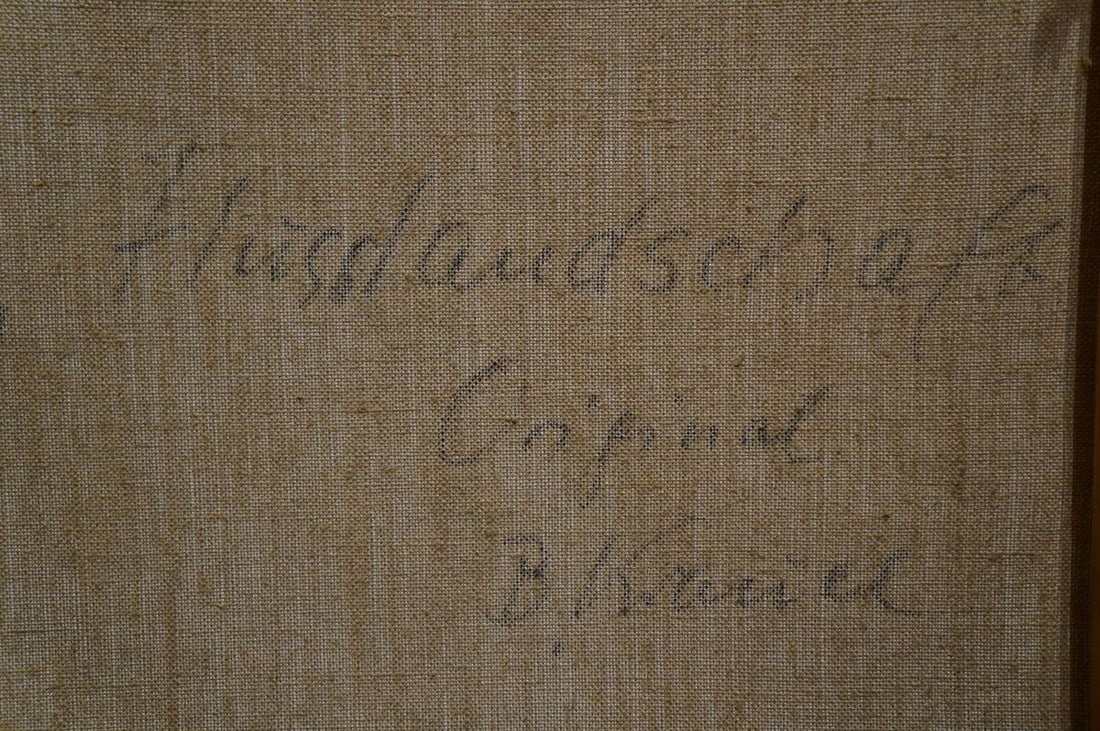 Flusslandschaft
Original
B.